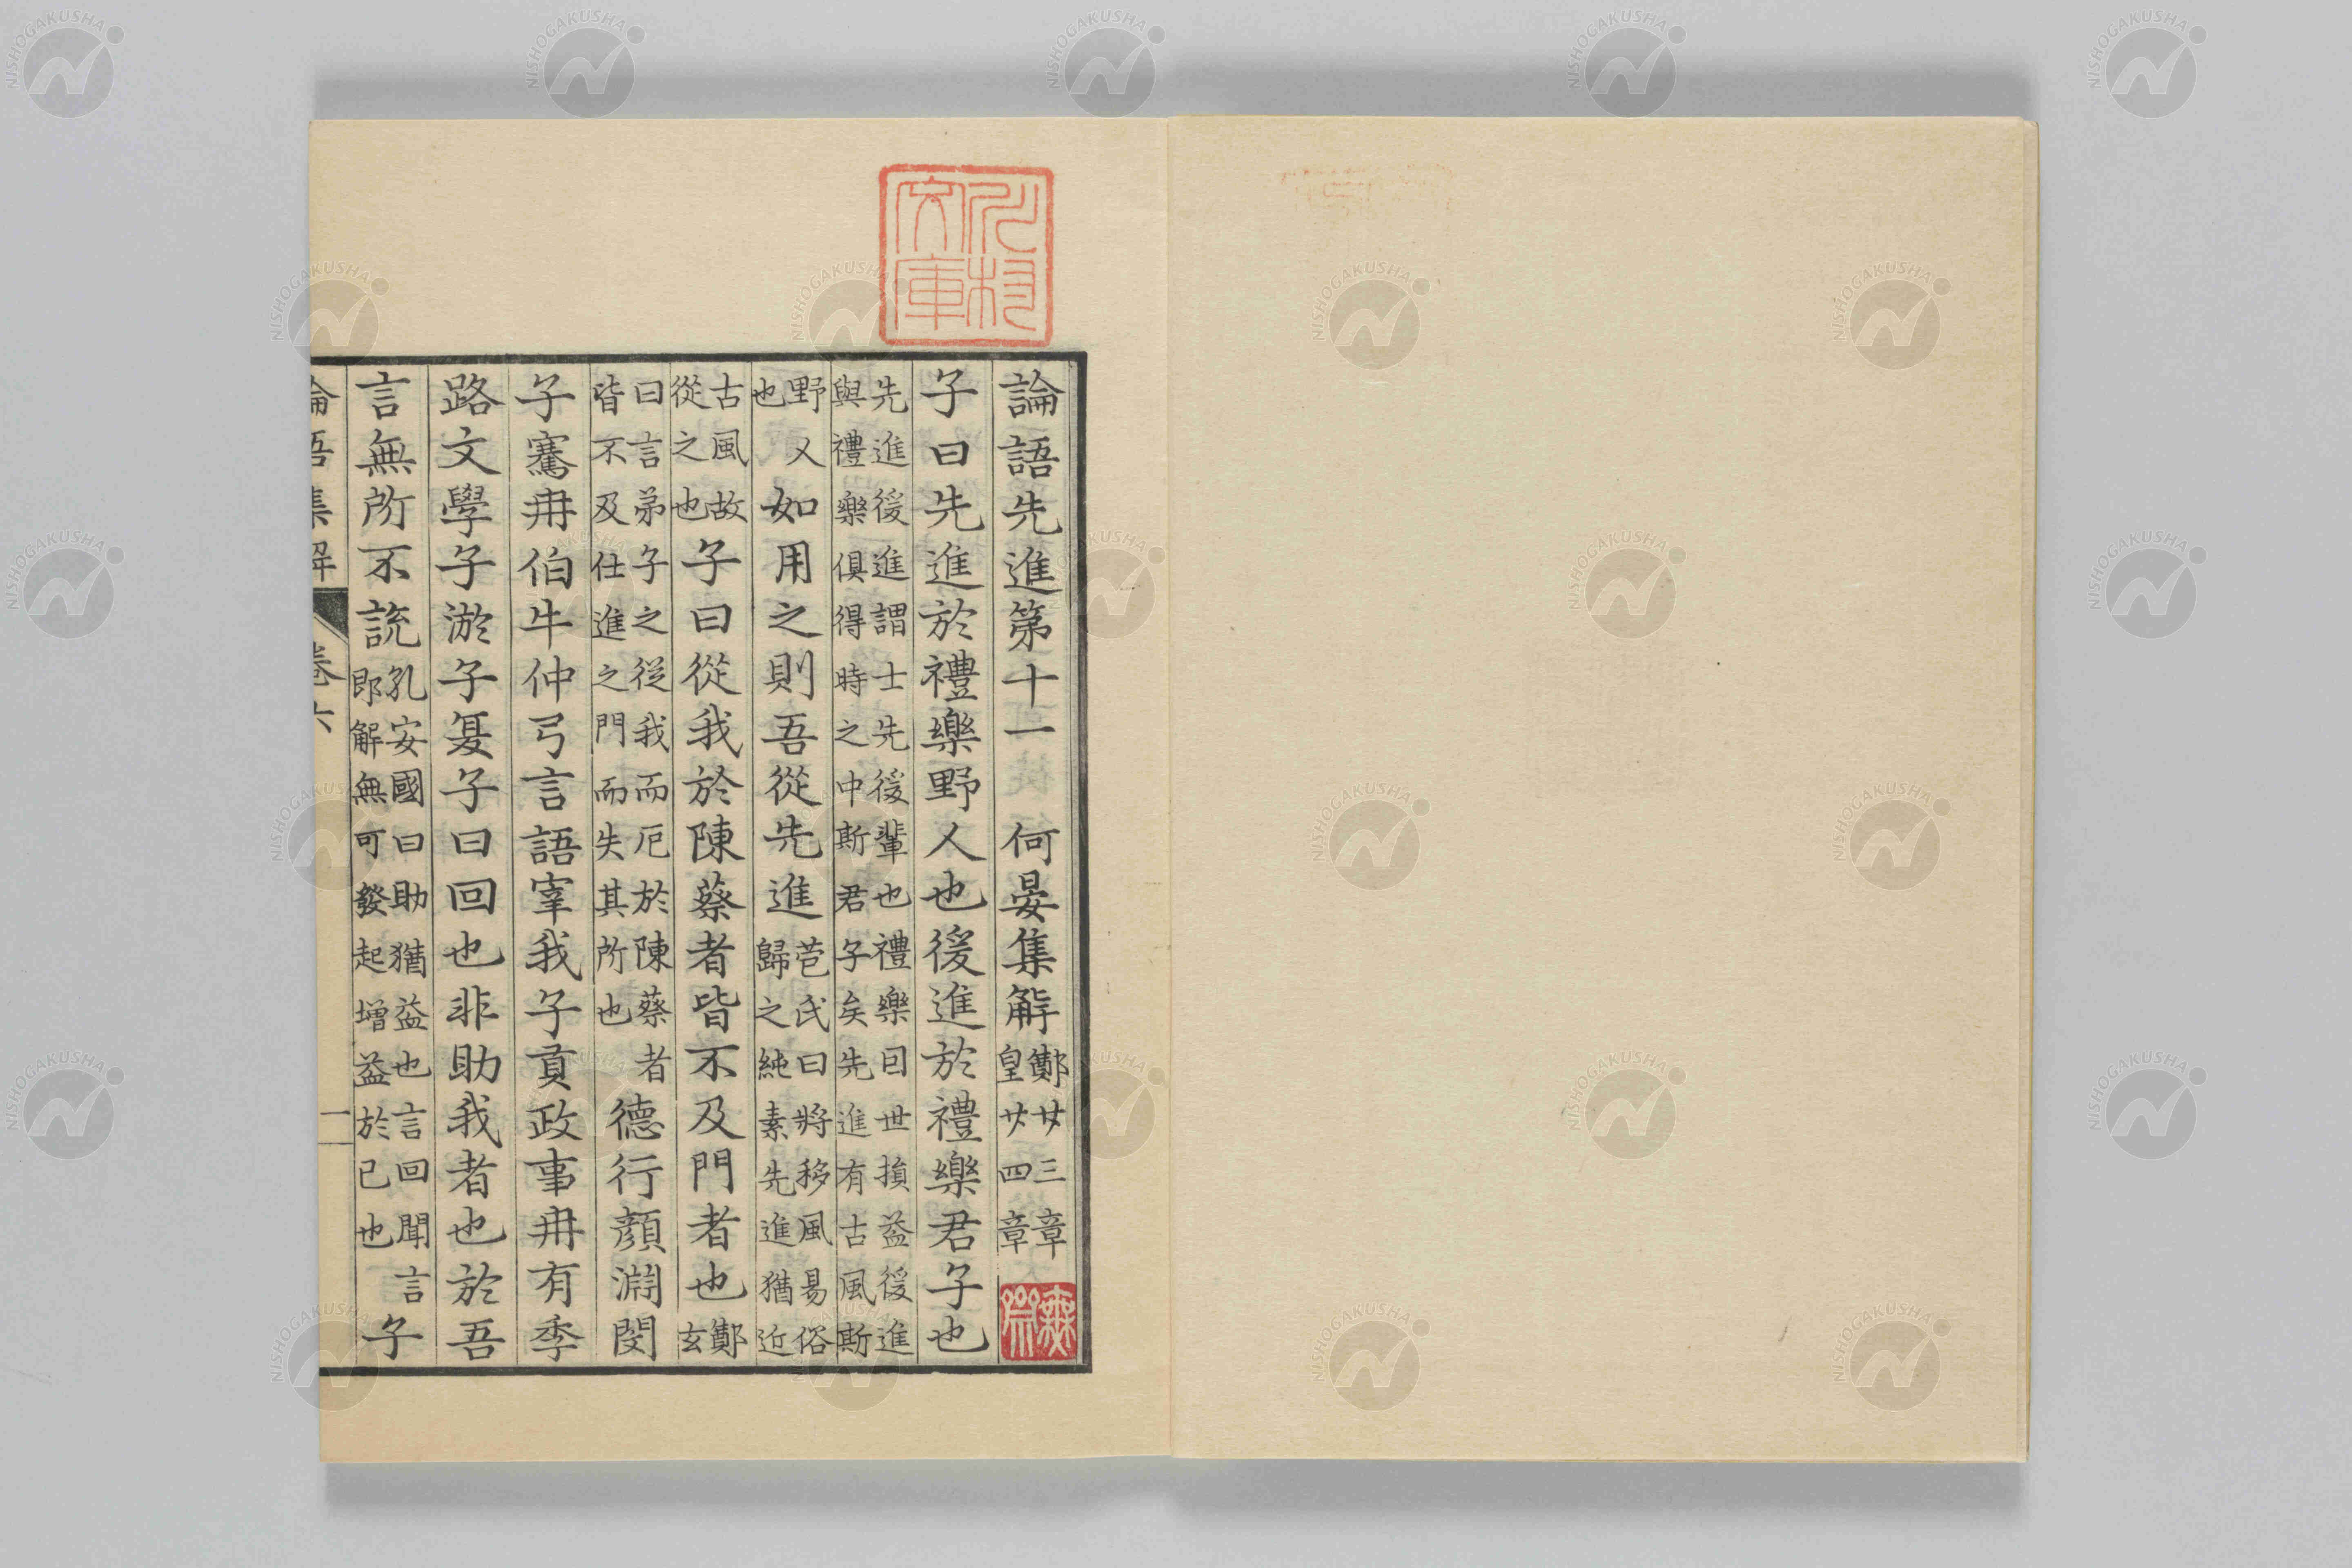 論語先進第十一　何晏集解鄭廿三章皇廿四章
子曰先進於禮樂野人也後進於禮樂君子也
先進後進謂士先後輩也禮樂因世損益後進
與禮樂俱得時之中斯君子矣先進有古風斯
野人也如用之則吾從先進苞氏曰將移風易俗歸之純素先進猶近
古風故從之也子曰從我於陳蔡者皆不及門者也鄭玄
曰言弟子之從我而厄於陳蔡者皆不及仕進之門而失其所也德行顏淵閔
子騫冉伯牛仲弓言語宰我子貢政事冉有季
路文學子游子夏子曰回也非助我者也於吾
言無所不說孔安國曰助猶益也言回聞言即解無可發起增益於已也子
論語集解　卷六　一
文庫
NISHOGAKUSHA